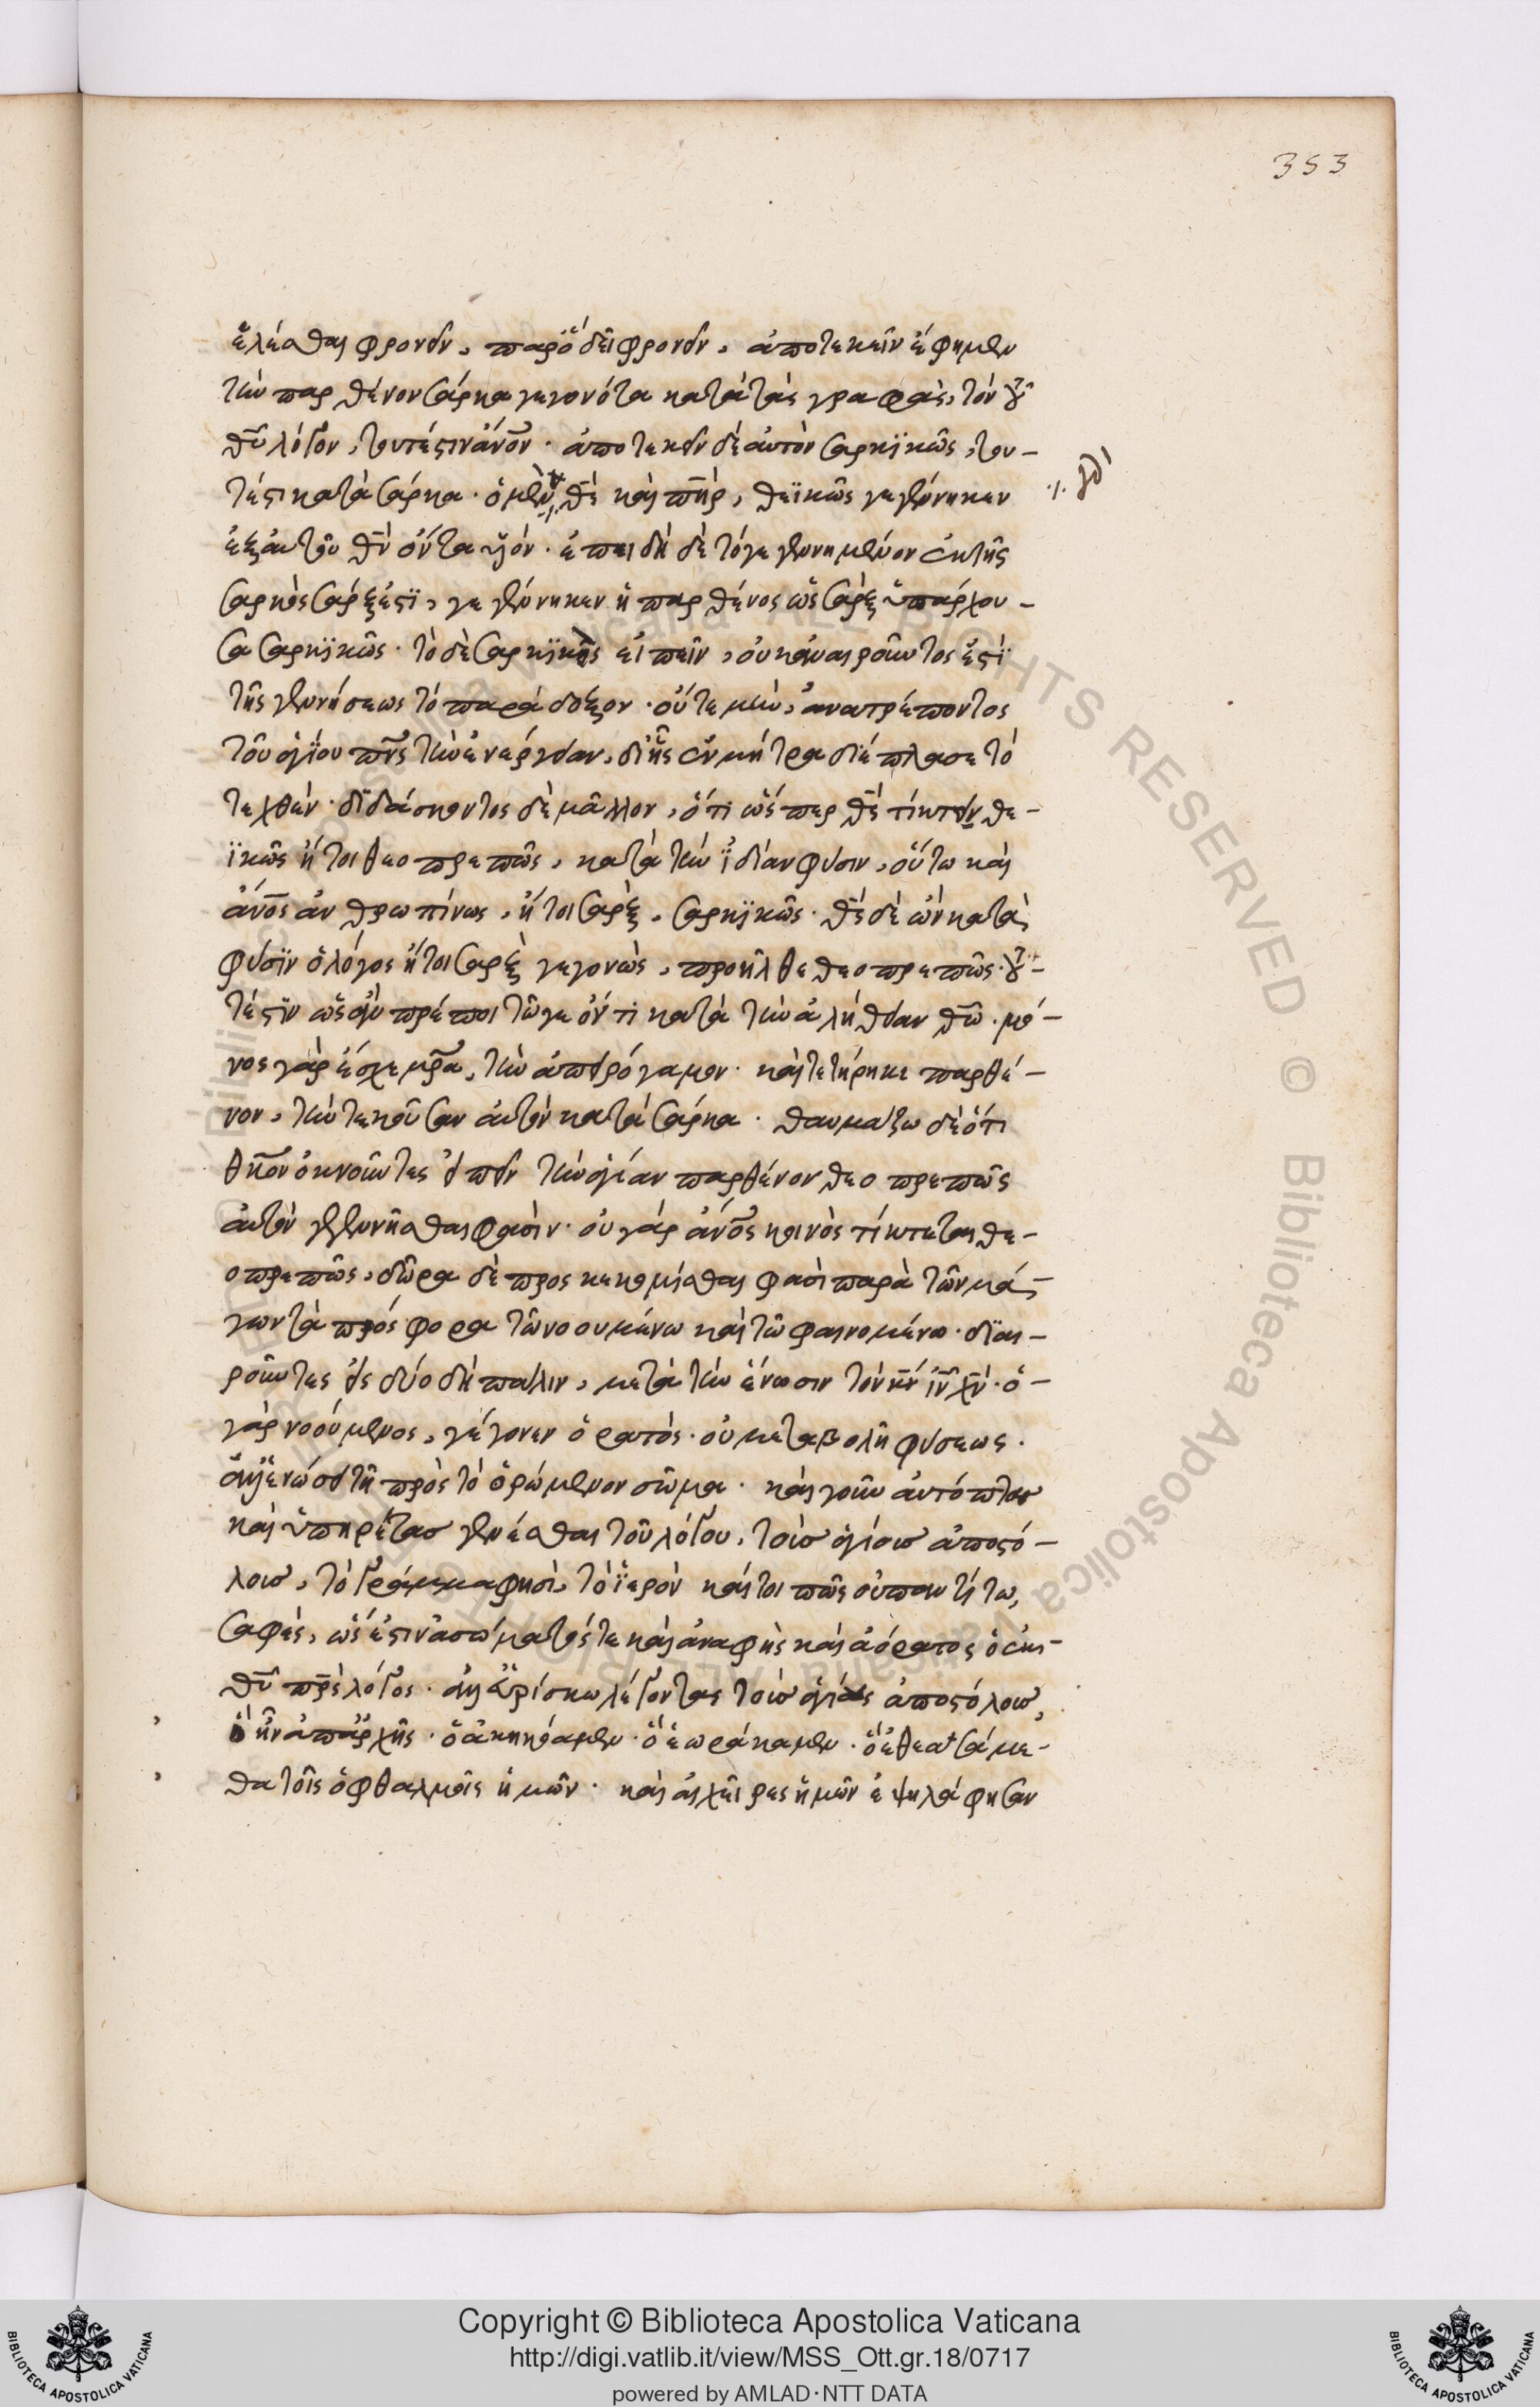 353
ἑλέσθαι φρονεῖν, παρ' ὃ δεῖ φρονεῖν, ἀποτεκεῖν ἔφημεν
τὴν παρθένον σάρκα γεγονότα κατὰ τὰς γραφὰς, τὸν ἐκ
θυ λόγον, τουτέστιν ἄνον· ἀποτεκεῖν δὲ αὐτὸν σαρκϊκῶς, του-
τέστι κατὰ σάρκα· ὁ μὲν θς καὶ πηρ, θεϊκῶς γεγέννηκεν
ἐξ αὐτοῦ θν ὄντα υἱόν· ἐπειδὴ δὲ τὸ γεγεννημένον ἐκ τῆς
σαρκὸς σάρξ ἐστϊ, γεγέννηκεν ἡ παρθένος ὡς σὰρξ ὑπάρχου-
σα σαρκϊκῶς· τὸ δὲ σαρκϊκῶς εἰπεῖν, οὐκ ἀναιροῦντος ἐστὶ
τῆς γεννήσεως τὸ παράδοξον· οὔτε μὴν, ἀνατρέποντος
τοῦ ἁγίου πνς τὴν ἐνέργειαν, δι' ἧς ἐν μήτρα διέπλασε τὸ
τεχθέν· διδάσκοντος δὲ μᾶλλον, ὅτι ὥσπερ θς τίκτειν θε-
ϊκῶς ἤτοι θεοπρεπῶς, κατὰ τὴν ἰδίαν φύσιν, οὕτω καὶ
ἄνος ἀνθρωπίνως, ἤτοι σὰρξ, σαρκϊκῶς· θς δὲ ὢν κατὰ
φύσϊν ὁ λόγος ἤτοι σὰρξ γεγονὼς, προῆλθε θεοπρεπῶς· του-
τέστϊν ὡς ἂν πρέποι τῶ γε ὄντι κατὰ τὴν ἀλήθειαν θῶ. μό-
νος γὰρ ἔσχε μρα, τὴν ἀπειρόγαμον· καὶ τετήρηκε παρθέ-
νον, τὴν τεκοῦσαν αὐτὸν κατὰ σάρκα· θαυμάζω δὲ ὅτι
θκον ὀκνοῦντες εἰπεῖν τὴν ἁγίαν παρθένον θεοπρεπῶς
αὐτὸν γεγεννῆσθαι φασὶν· οὐ γὰρ ἄνος κοινὸς τίκτεται θε-
οπρεπῶς, δῶρα δὲ προσκεκομίσθαι φασὶ παρὰ τῶν μά-
γων τὰ πρόσφορα τῶ νοουμένω καὶ τῶ φαινομένω· διαι-
ροῦντες εἰς δύο δὴ πάλιν, μετὰ τὴν ἕνωσιν τὸν κν ιν χν· ὁ
γὰρ νοούμενος, γέγονεν ὁρατὸς· οὐ μεταβολῆ φύσεως·
ἀλλ' ἑνώσει τῆ πρὸς τὸ ὁρώμενον σῶμα· καὶ γοῦν αὐτόπτας
καὶ ὑπηρέτας γενέσθαι τοῦ λόγου, τοῖς ἁγίοις ἀποστό-
λοις, τὸ γράμμα φησὶ, τὸ ἱερόν καίτοι πῶς οὐ παντί τω,
σαφὲς, ὡς ἔστιν ἀσώματός τε καὶ ἀναφὴς καὶ ἀόρατος ὁ ἐκ
θυ πρς λόγος· ἀλλ' εὑρίσκω λέγοντας τοὺς ἁγίους ἀποστόλους,
ὃ ἦν ἀπ' ἀρχῆς· ὃ ἀκηκόαμεν· ὃ ἑωράκαμεν· ὃ ἐθεασάμε-
θα τοῖς ὀφθαλμοῖς ἡμῶν· καὶ αἱ χεῖρες ἡμῶν ἐψηλάφησαν
Copyright © Biblioteca Apostolica Vaticana
http://digi.vatlib.it/view/MSS_Ott.gr.18/0717
powered by AMLAD·NTT DATA